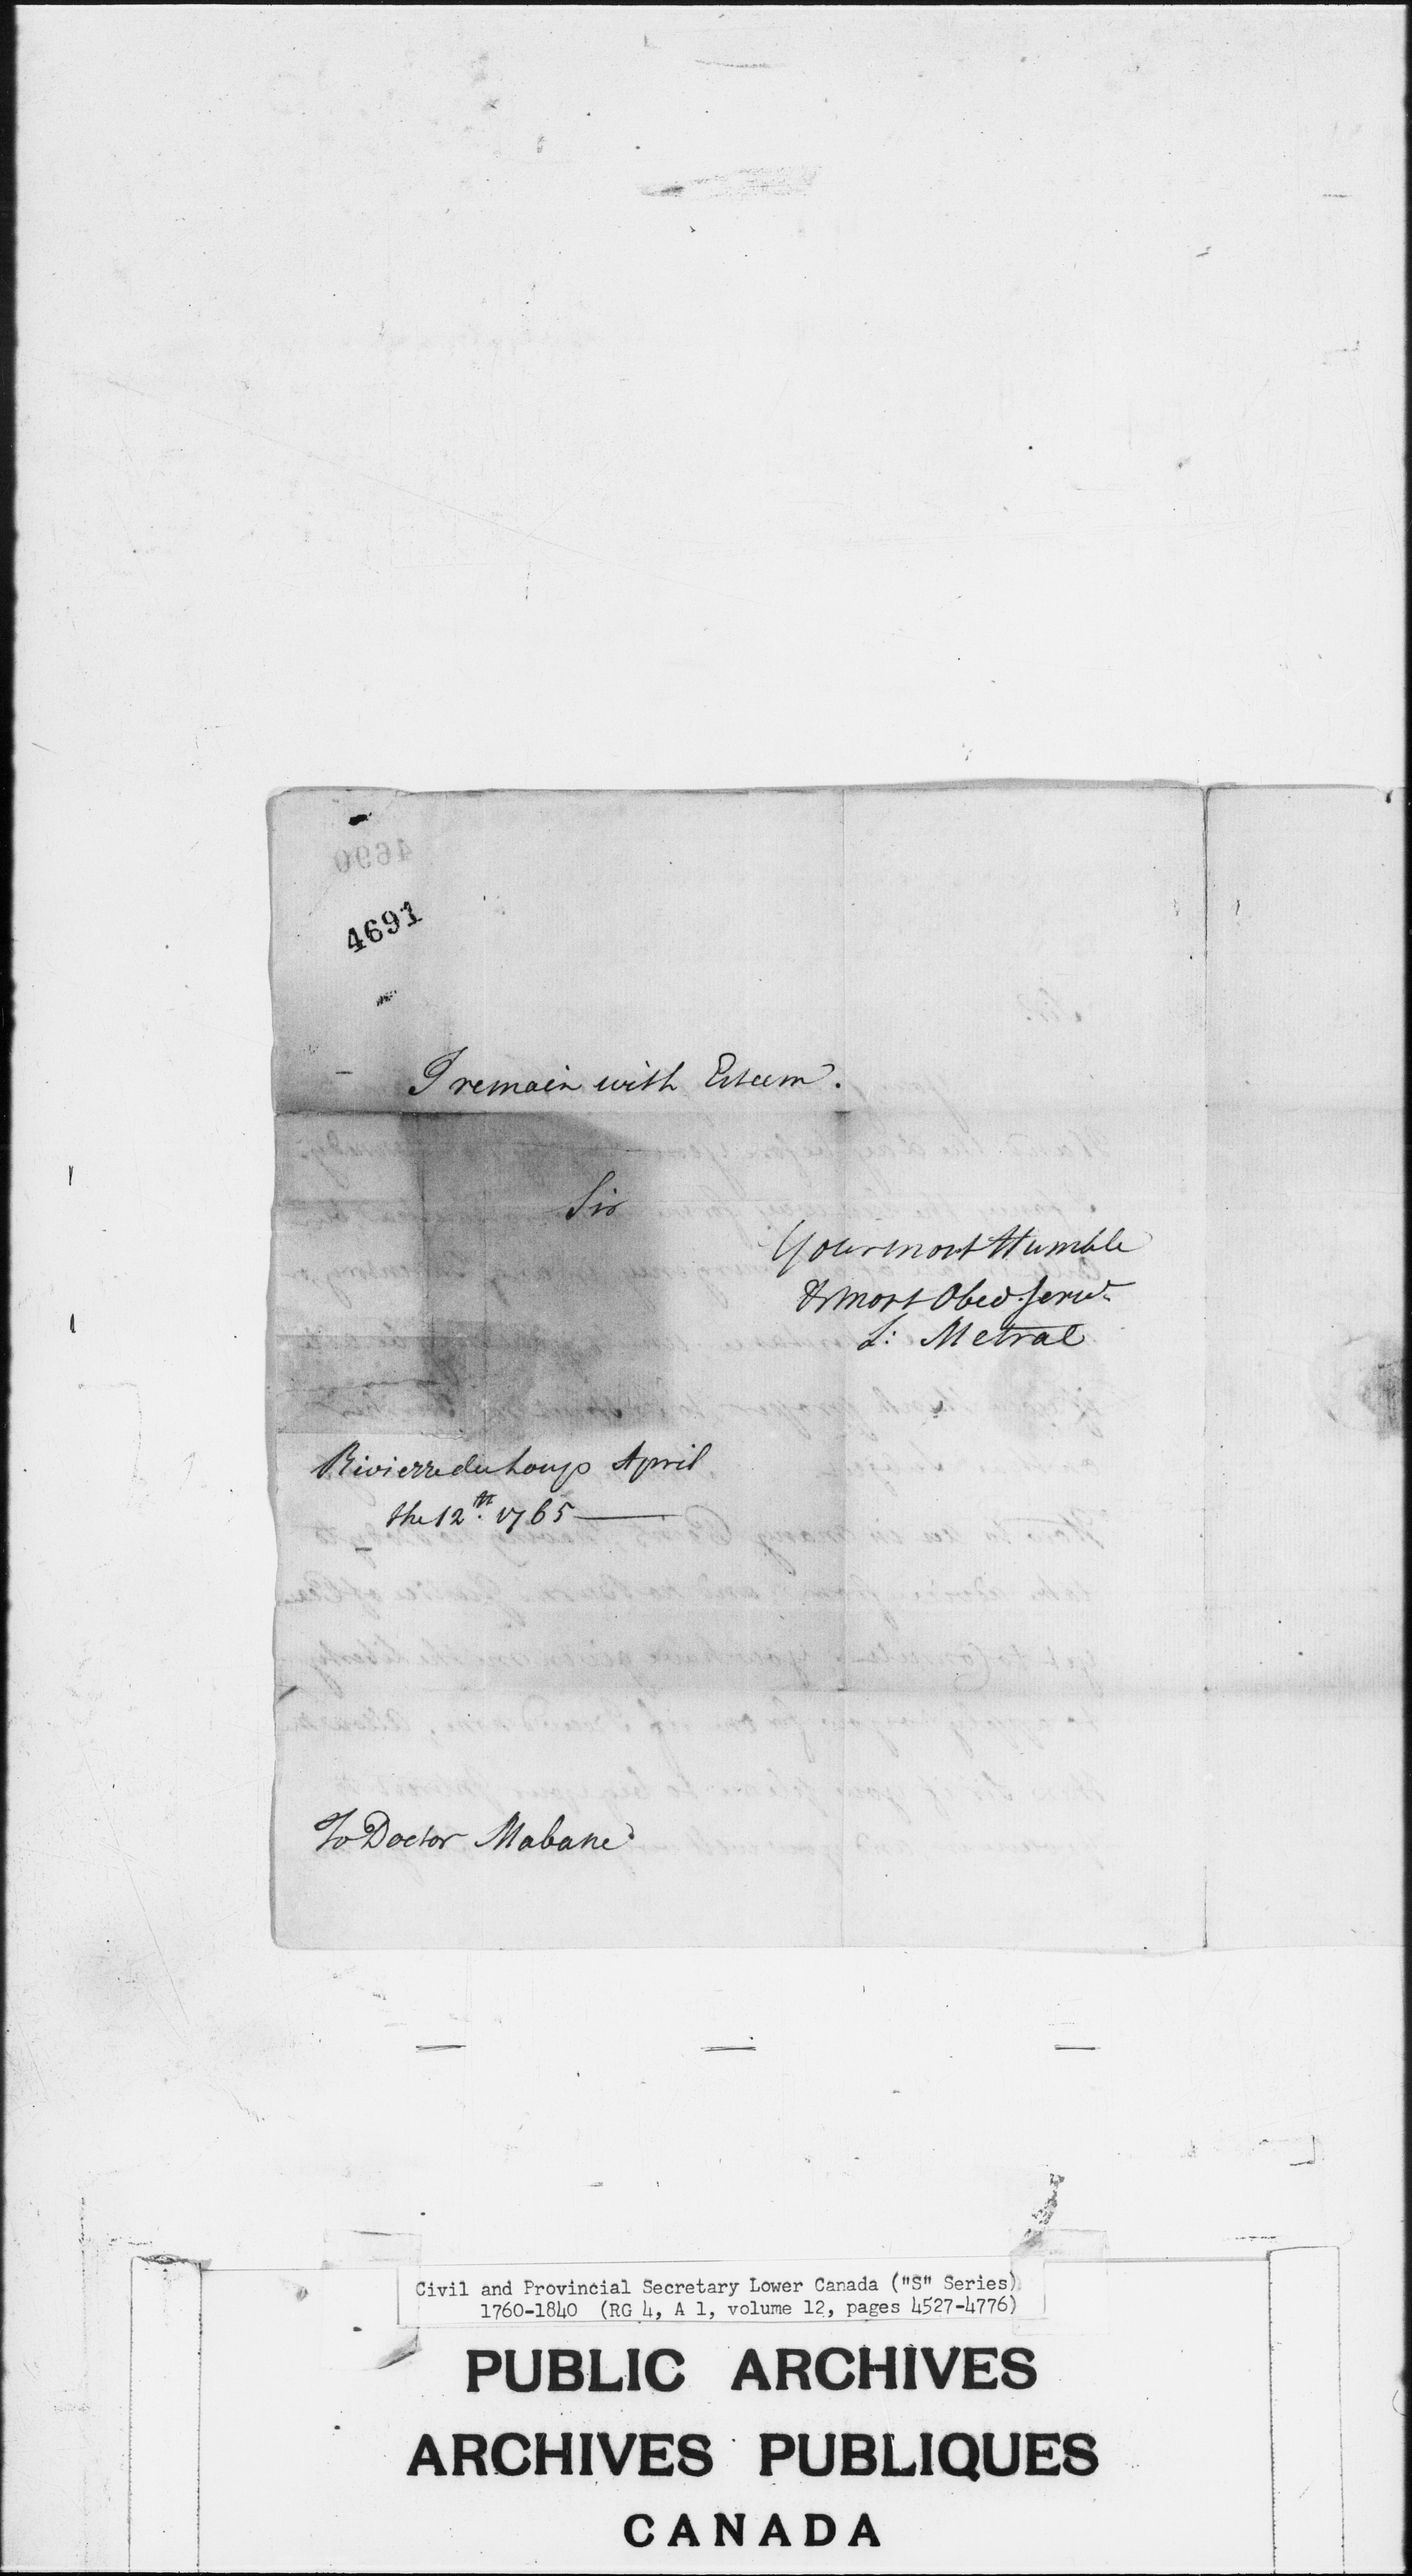 4691
I remain with Esteem.
Sir
Your most Humble
& most Obed. servt.
L: Metral
Rivierre du Loup April
the 12th. 1765
To Doctor Mabane
Civil and Provincial Secretary Lower Canada ("S" Series)
1760-1840 (RG 4, A 1, volume 12, pages 4527-4776)
PUBLIC ARCHIVES
ARCHIVES PUBLIQUES
CANADA